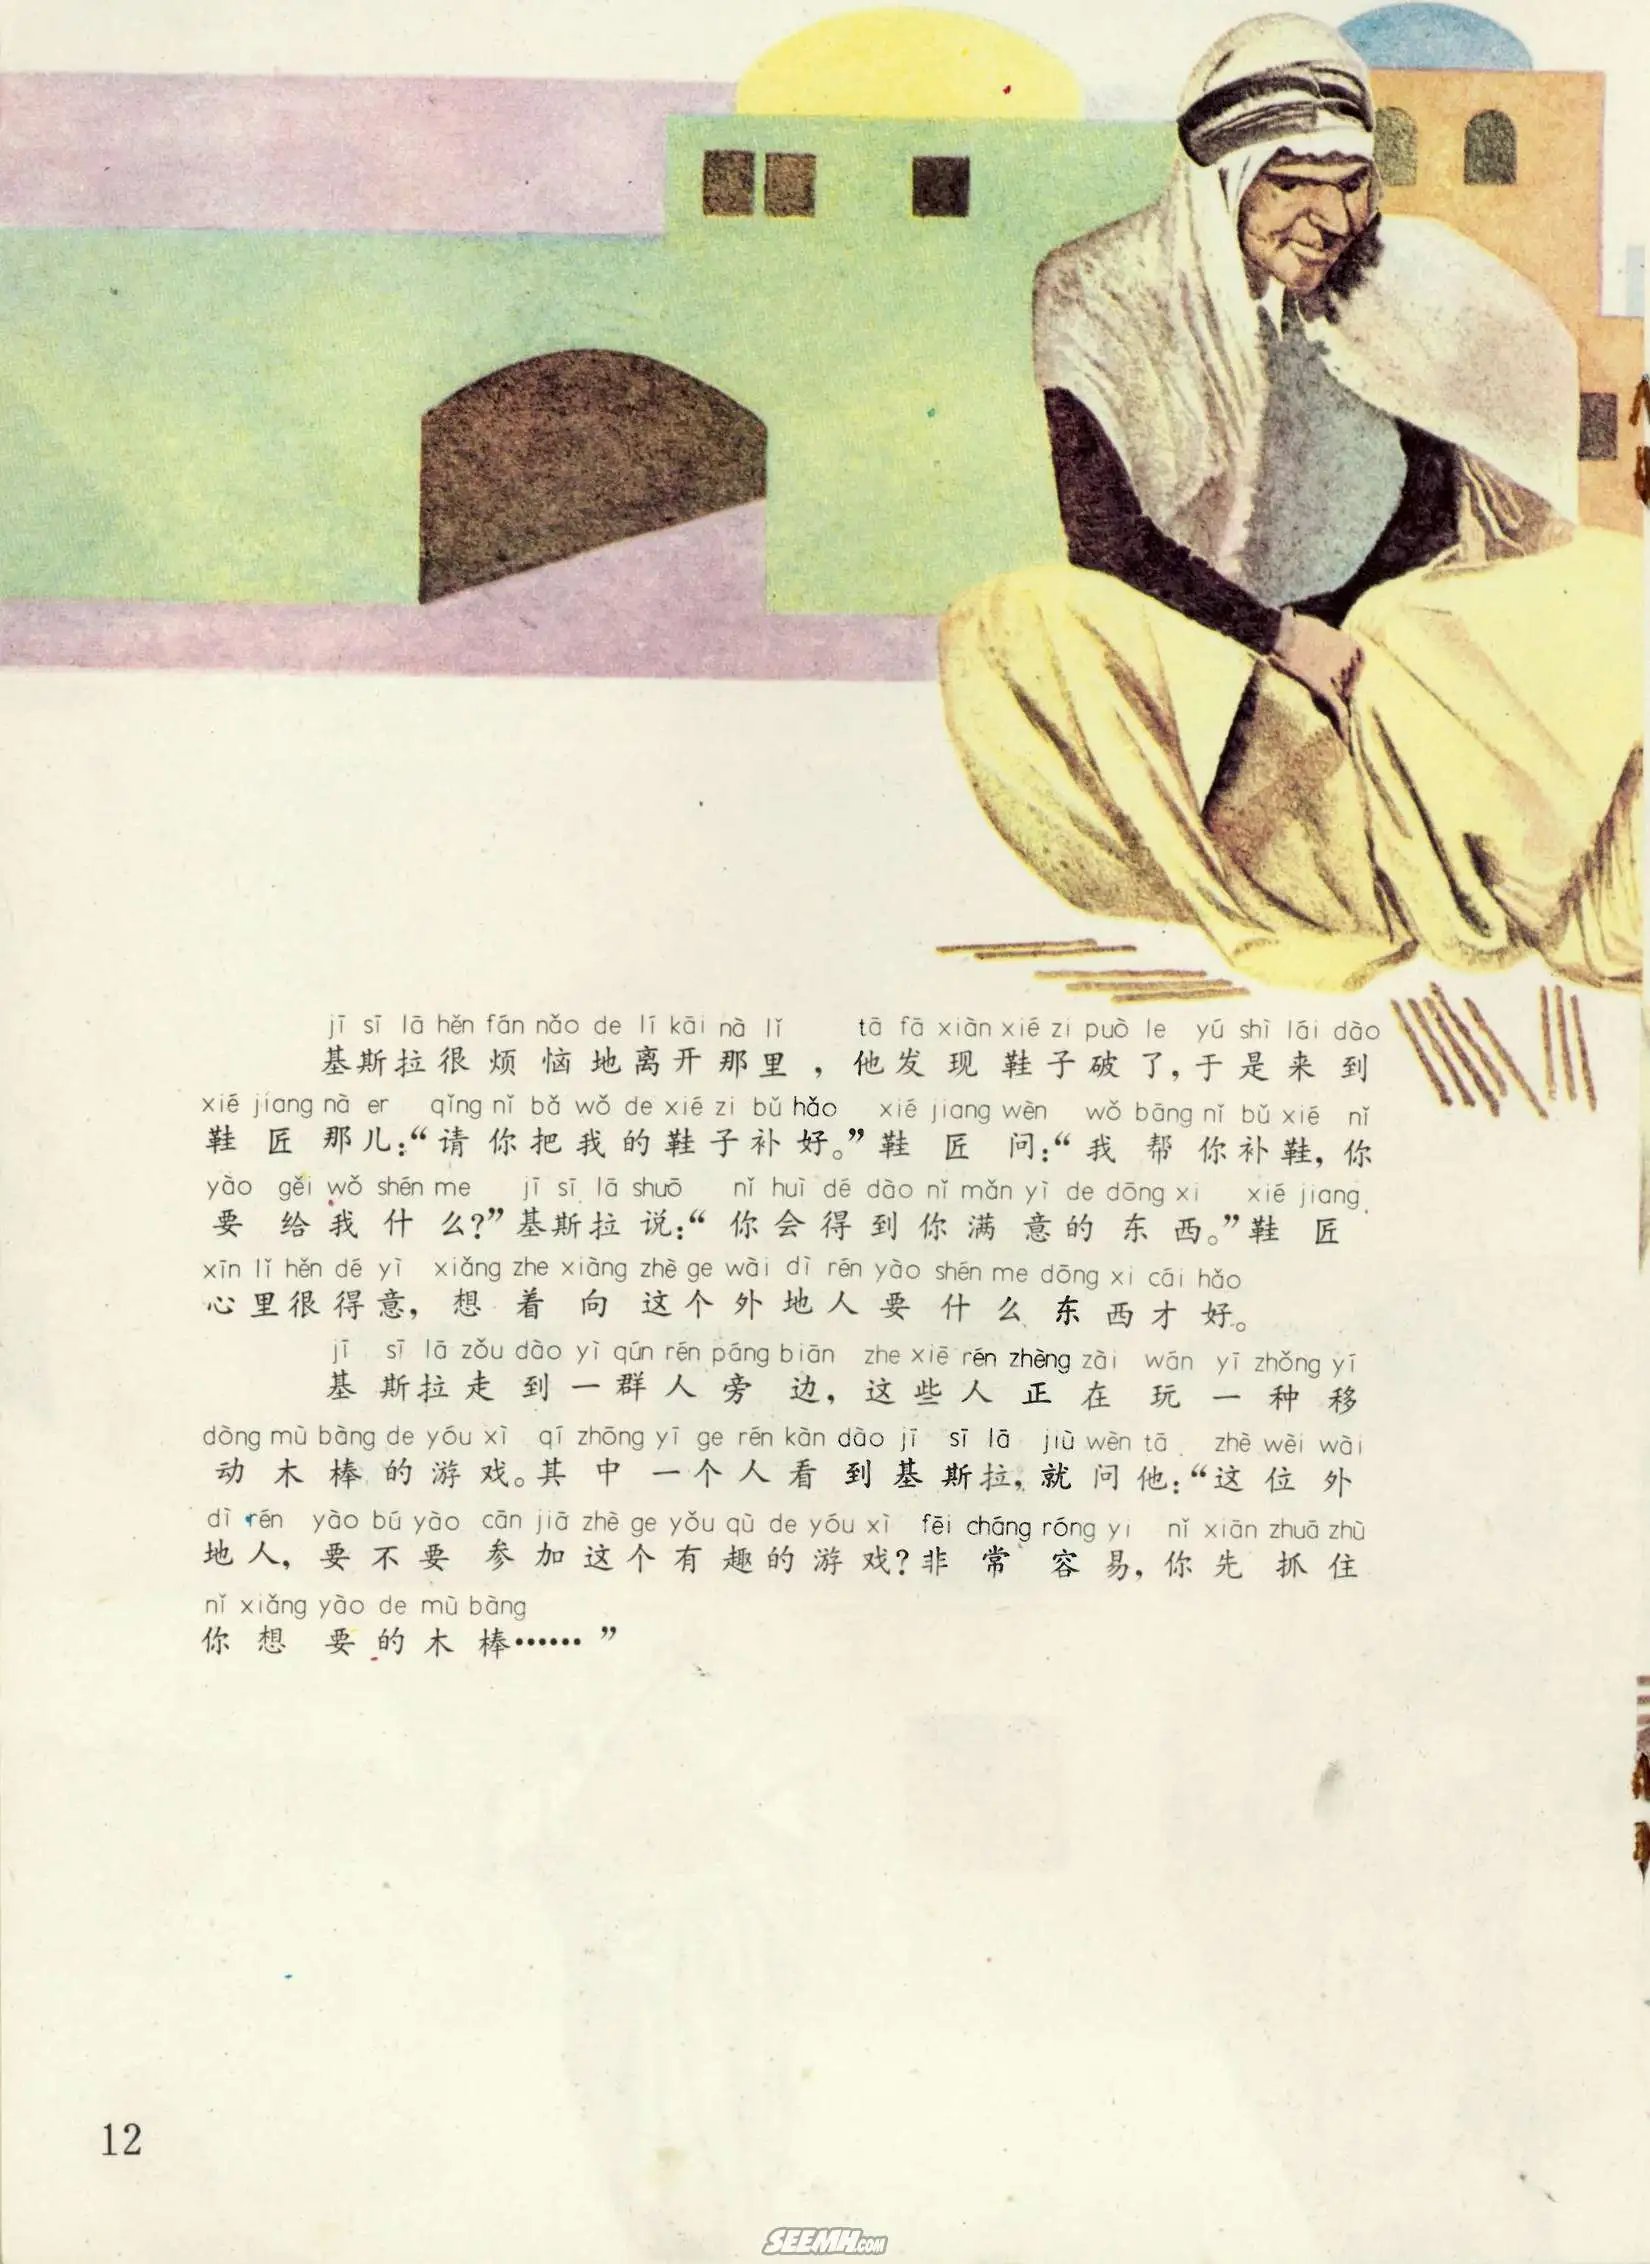 jī sī lā hěn fán nǎo de lí kāi nà lǐ tā fā xiàn xié zi può le yú shì lái dào
基斯拉很烦恼地离开那里，他发现鞋子破了，于是来到
xié jiang nà er qǐng nǐ bǎ wǒ de xié zi bǔ hǎo xié jiang wèn wǒ bāng nǐ bǔ xié nǐ
鞋匠那儿：“请你把我的鞋子补好。”鞋匠问：“我帮你补鞋，你
yào gěi wǒ shén me jī sī lā shuō nǐ huì dé dào nǐ mǎn yì de dōng xi xié jiang
要给我什么？”基斯拉说：“你会得到你满意的东西。”鞋匠
xīn lǐ hěn dé yì xiǎng zhe xiàng zhè ge wài dì rén yào shén me dōng xi cái hǎo
心里很得意，想着向这个外地人要什么东西才好。
jī sī lā zǒu dào yì qún rén páng biān zhe xiē rén zhèng zài wán yī zhǒng yí
基斯拉走到一群人旁边，这些人正在玩一种移
dòng mù bàng de yóu xì qí zhōng yī ge rén kàn dào jī sī lā jiù wèn tā zhè wèi wài
动木棒的游戏。其中一个人看到基斯拉，就问他：“这位外
dì rén yào bú yào cān jiā zhè ge yǒu qù de yóu xì fēi cháng róng yi nǐ xiān zhuā zhù
地人，要不要参加这个有趣的游戏？非常容易，你先抓住
nǐ xiǎng yào de mù bàng
你想要的木棒……”
12
SEEMH.COM